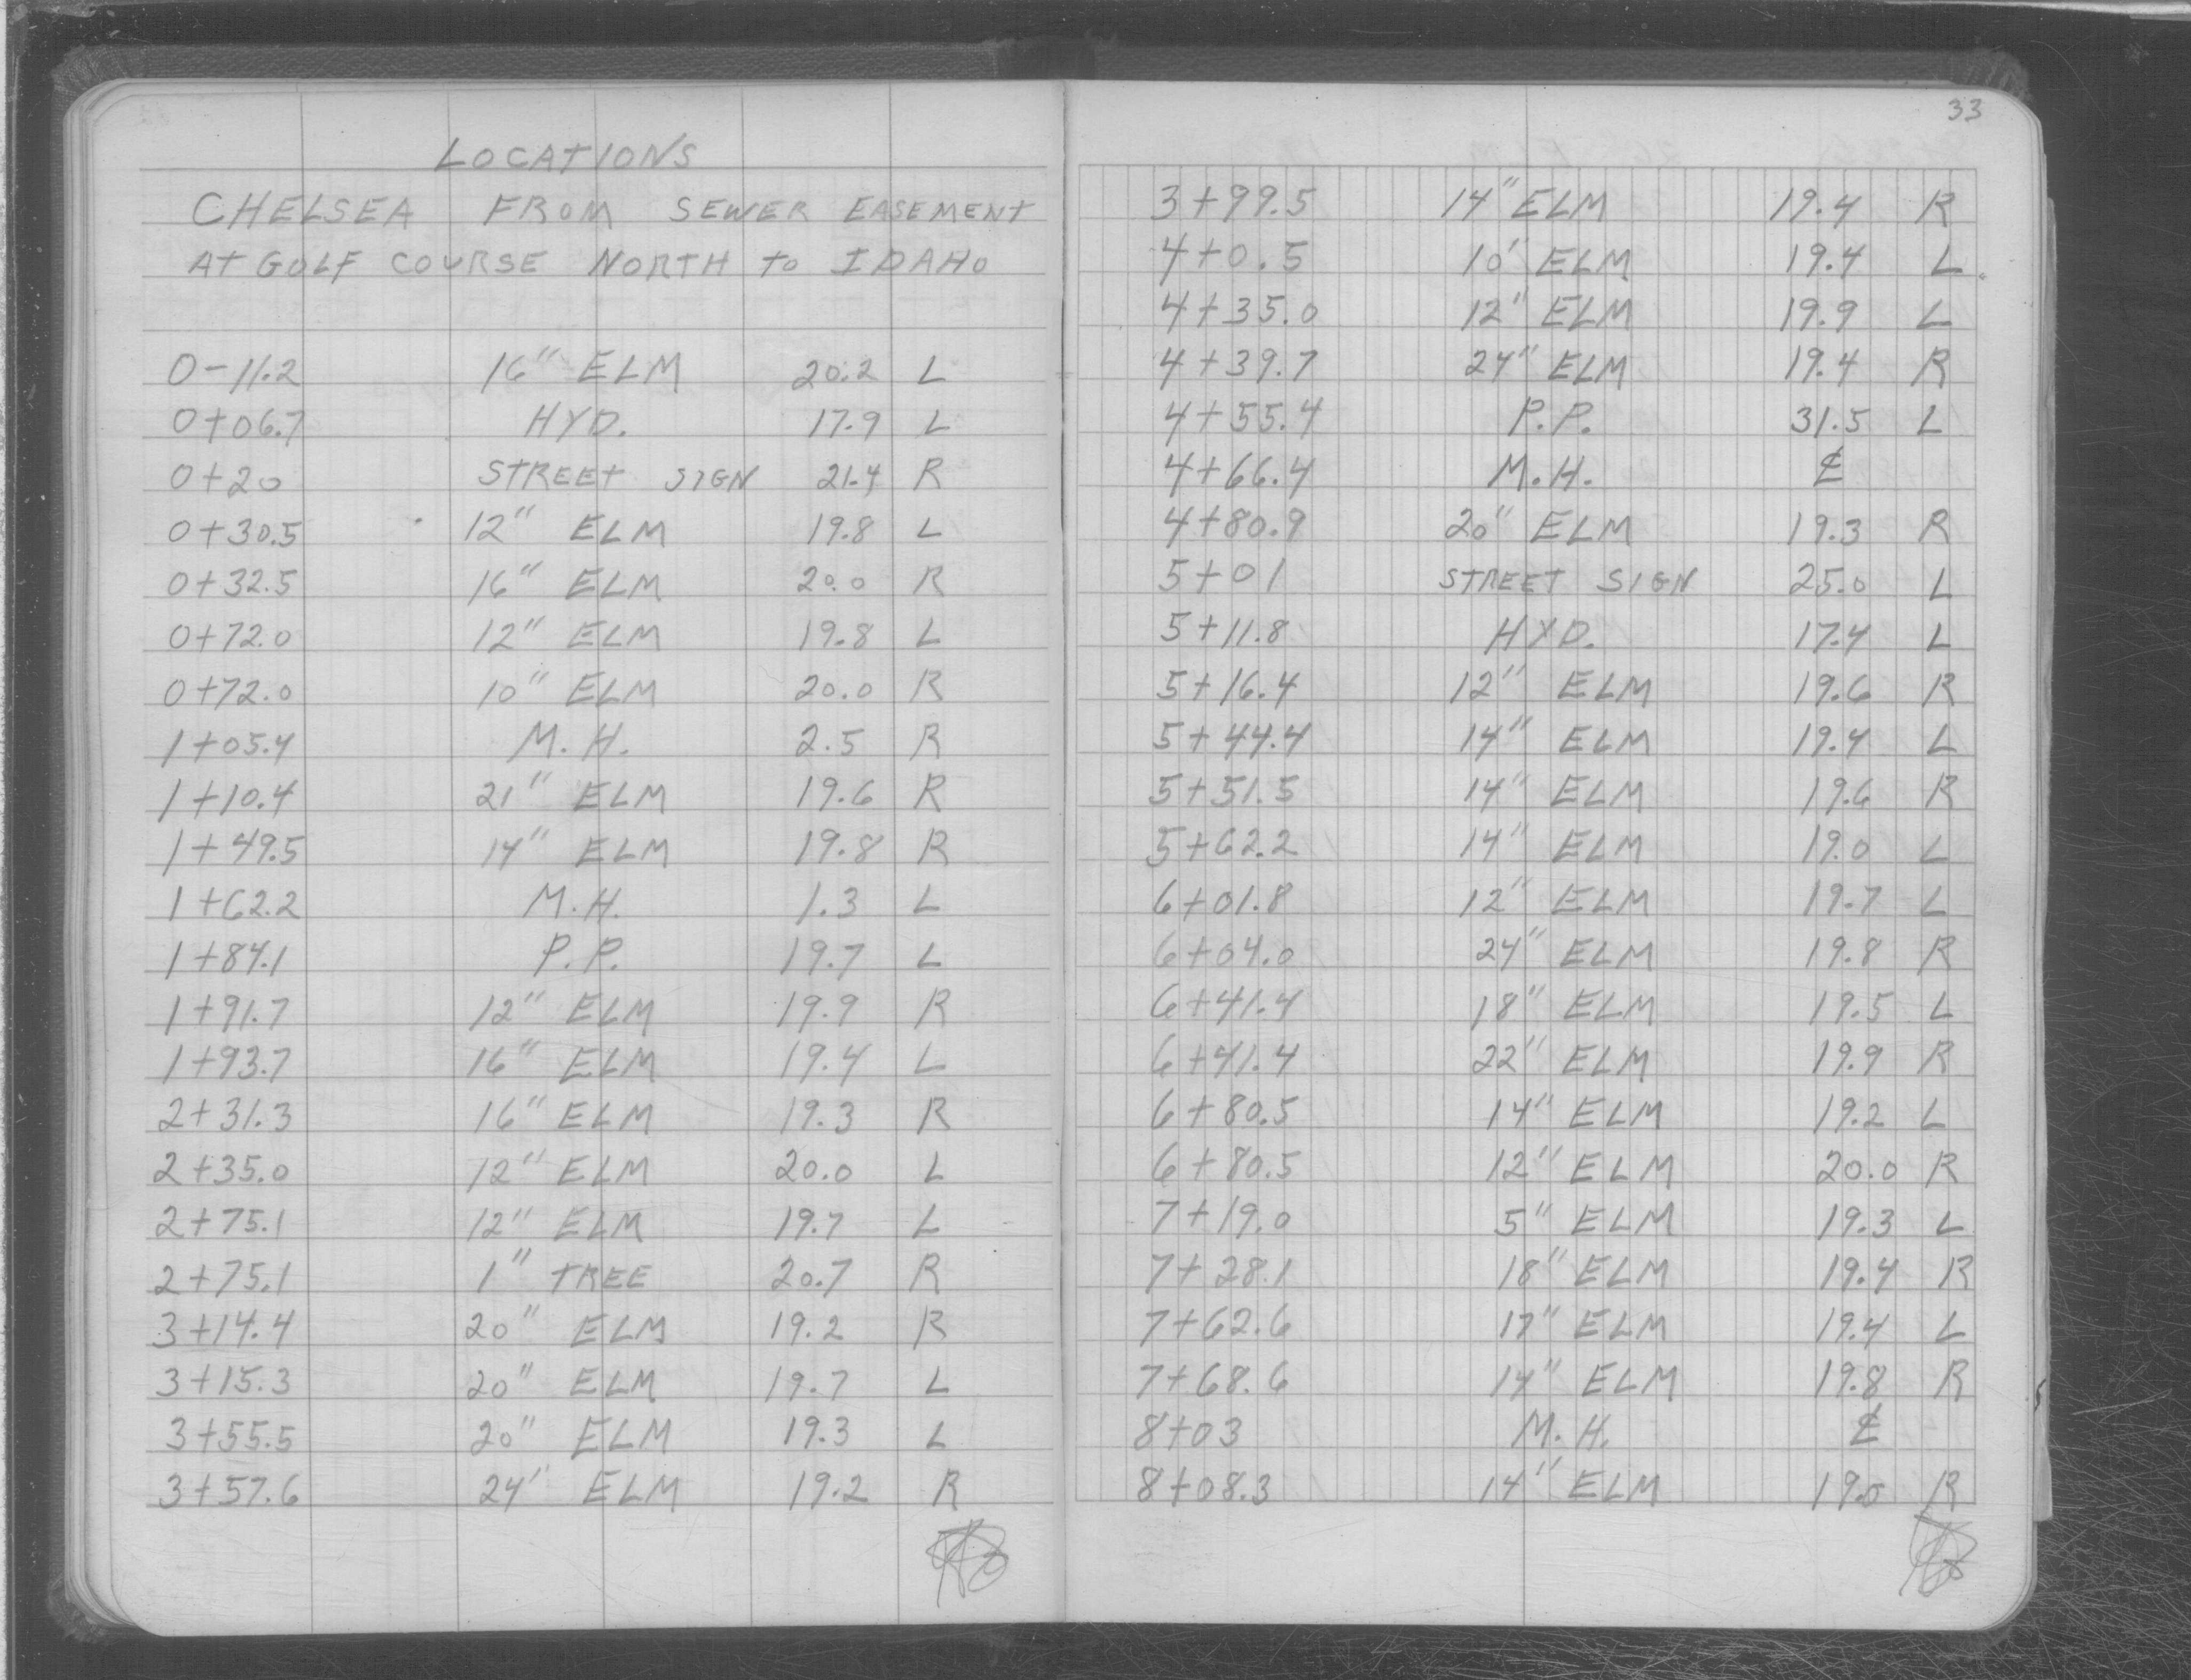 LOCATIONS
CHELSEA FROM SEWER EASEMENT
AT GOLF COURSE NORTH TO IDAHO
0-11.2 16" ELM 20.2 L
0+06.7 HYD. 17.9 L
0+20 STREET SIGN 21.4 R
0+30.5 12" ELM 19.8 L
0+32.5 16" ELM 20.0 R
0+72.0 12" ELM 19.8 L
0+72.0 10" ELM 20.0 R
1+05.4 M.H. 2.5 R
1+10.4 21" ELM 19.6 R
1+49.5 14" ELM 19.8 R
1+62.2 M.H. 1.3 L
1+84.1 P.P. 19.7 L
1+91.7 12" ELM 19.9 R
1+93.7 16" ELM 19.4 L
2+31.3 16" ELM 19.3 R
2+35.0 12" ELM 20.0 L
2+75.1 12" ELM 19.7 L
2+75.1 1" TREE 20.7 R
3+14.4 20" ELM 19.2 R
3+15.3 20" ELM 19.7 L
3+55.5 20" ELM 19.3 L
3+57.6 24" ELM 19.2 R
33
3+99.5 14" ELM 19.4 R
4+0.5 10" ELM 19.4 L
4+35.0 12" ELM 19.9 L
4+39.7 24" ELM 19.4 R
4+55.4 P.P. 31.5 L
4+66.4 M.H. ₵
4+80.9 20" ELM 19.3 R
5+01 STREET SIGN 25.0 L
5+11.8 HYD. 17.4 L
5+16.4 12" ELM 19.6 R
5+44.4 14" ELM 19.4 L
5+51.5 14" ELM 19.6 R
5+62.2 14" ELM 19.0 L
6+01.8 12" ELM 19.7 L
6+04.0 24" ELM 19.8 R
6+41.4 18" ELM 19.5 L
6+41.4 22" ELM 19.9 R
6+80.5 14" ELM 19.2 L
6+80.5 12" ELM 20.0 R
7+19.0 5" ELM 19.3 L
7+28.1 18" ELM 19.4 R
7+62.6 17" ELM 19.4 L
7+68.6 14" ELM 19.8 R
8+03 M.H. ₵
8+08.3 14" ELM 19.0 R